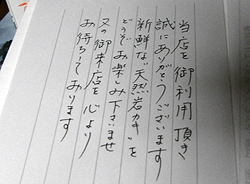 当店を御利用頂き
誠にありがとうございます
新鮮な"天然岩カキ"を
どうぞお楽しみ下さいませ
又の御来店を心より
お待ちしております